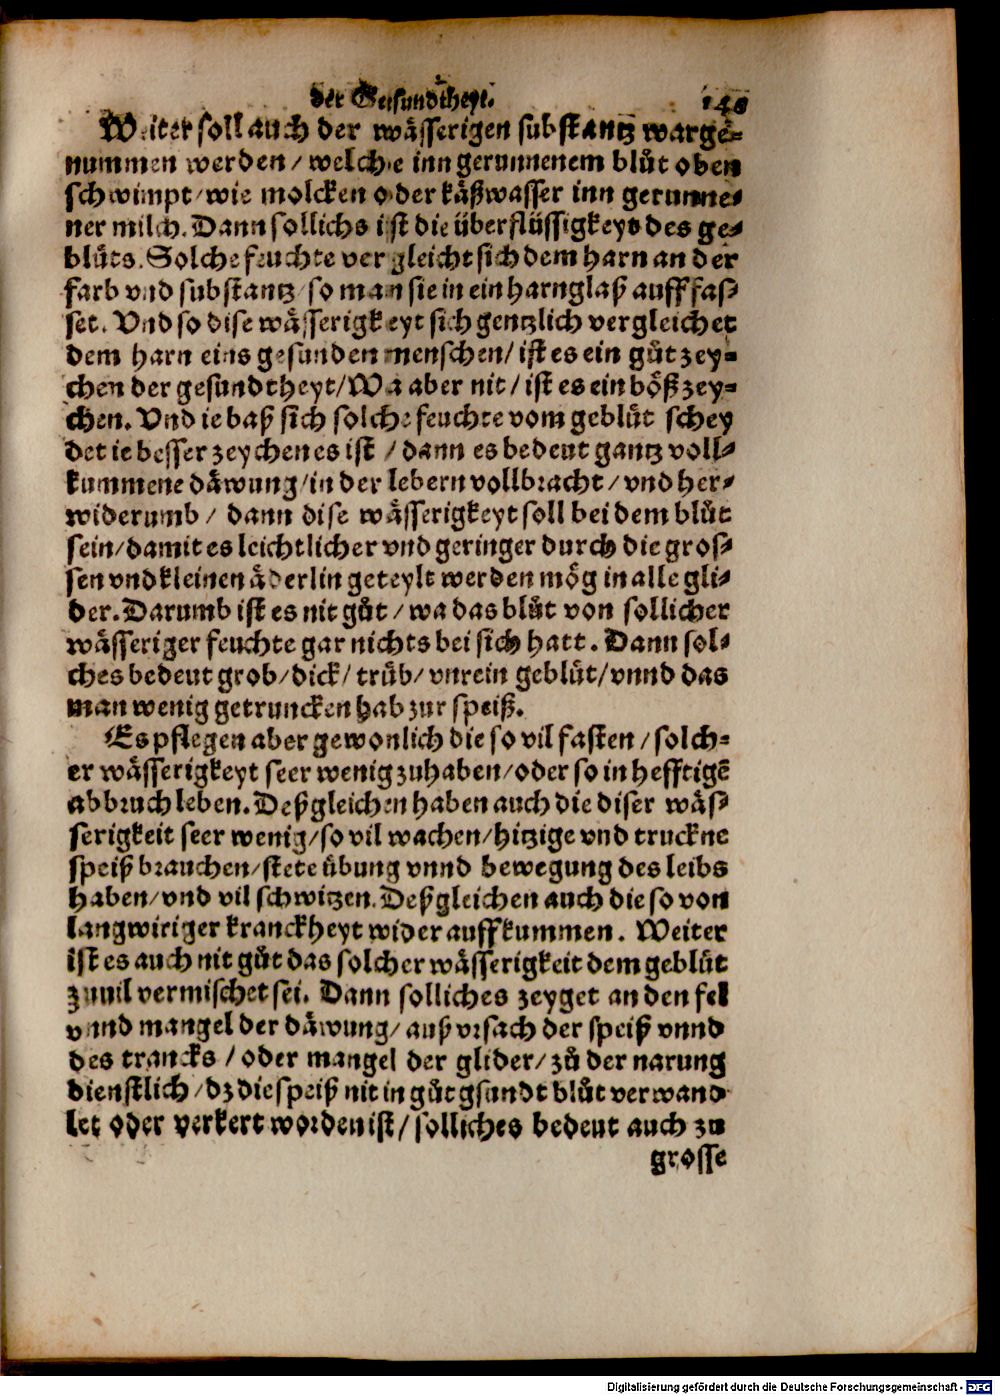 der Gesundtheyt. 148
Weiter soll auch der wässerigen substantz wargē=
nummen werden / welche inn gerunnenem blůt oben
schwimpt / wie molcken oder käßwasser inn gerunne=
ner milch. Dann sollichs ist die überflüssigkeyt des ge=
blůts. Solche feuchte vergleicht sich dem harn an der
farb vnd substantz / so man sie in ein harnglaß auff fas=
set. Vnd so dise wässerigkeyt sich gentzlich vergleichet
dem harn eins gesunden menschen / ist es ein gůt zey=
chen der gesundtheyt / Wa aber nit / ist es ein böß zey=
chen. Vnd ie baß sich solche feuchte vom geblůt schey
det ie besser zeychen es ist / dann es bedeut gantz voll=
kummene däwung / in der lebern vollbracht / vnd her=
widerumb / dann dise wässerigkeyt soll bei dem blůt
sein / damit es leichtlicher vnd geringer durch die gros=
sen vnd kleinen äderlin geteylt werden mög in alle gli=
der. Darumb ist es nit gůt / wa das blůt von sollicher
wässeriger feuchte gar nichts bei sich hatt. Dann sol=
ches bedeut grob / dick / trüb / vnrein geblüt / vnnd das
man wenig getruncken hab zur speiß.
Es pflegen aber gewonlich die so vil fasten / solch=
er wässerigkeyt seer wenig zuhaben / oder so in hefftigē
abbruch leben. Deßgleichen haben auch die diser wäs=
serigkeit seer wenig / so vil wachen / hitzige vnd truckne
speiß brauchen / stete übung vnnd bewegung des leibs
haben / vnd vil schwitzen. Deßgleichen auch die so von
langwiriger kranckheyt wider auffkummen. Weiter
ist es auch nit gůt das solcher wässerigkeit dem geblůt
zuuil vermischet sei. Dann solliches zeyget an den fel
vnnd mangel der däwung / auß vrsach der speiß vnnd
des trancks / oder mangel der glider / zů der narung
dienstlich / dz die speiß nit in gůt gsundt blůt verwand=
let oder verkert worden ist / solliches bedeut auch zu
grosse
Digitalisierung gefördert durch die Deutsche Forschungsgemeinschaft - DFG